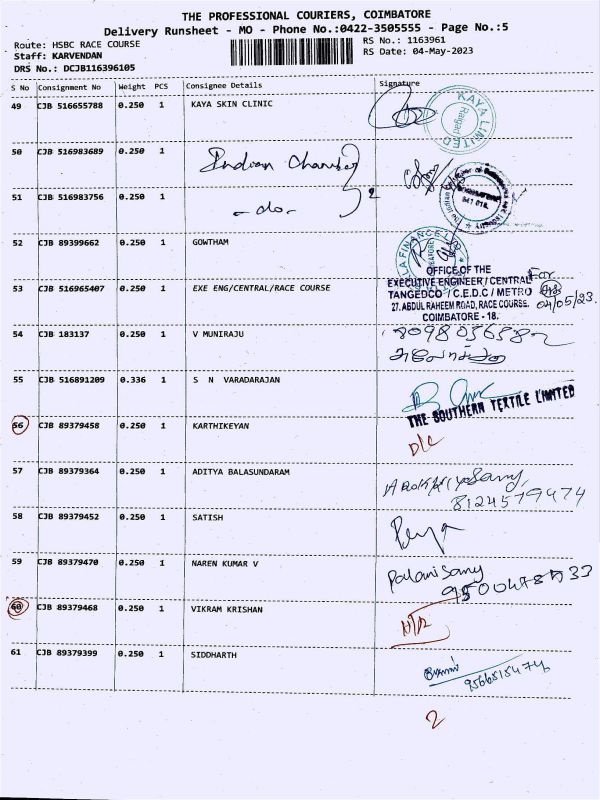 THE PROFESSIONAL COURIERS, COIMBATORE
Delivery Runsheet - MO - Phone No.:0422-3505555 - Page No.:5
Route: HSBC RACE COURSE
RS No.: 1163961
Staff: KARVENDAN
RS Date: 04-May-2023
DRS No.: DCJB116396105
S No Consignment No Weight PCS Consignee Details Signature
49 CJB 516655788 0.250 1 KAYA SKIN CLINIC
KAYA LIMITED
50 CJB 516983689 0.250 1 Indian Chamber
51 CJB 516983756 0.250 1 - do -
2
52 CJB 89399662 0.250 1 GOWTHAM
OFFICE OF THE
53 CJB 516965407 0.250 1 EXE ENG/CENTRAL/RACE COURSE EXECUTIVE ENGINEER / CENTRAL For
TANGEDCO / C.E.D.C / METRO
27, ABDUL RAHEEM ROAD, RACE COURSE. 04/05/23.
COIMBATORE - 18.
54 CJB 183137 0.250 1 V MUNIRAJU
55 CJB 516891209 0.336 1 S N VARADARAJAN
THE SOUTHERN TEXTILE LIMITED
56 CJB 89379458 0.250 1 KARTHIKEYAN D/C
57 CJB 89379364 0.250 1 ADITYA BALASUNDARAM
8124579474
58 CJB 89379452 0.250 1 SATISH
59 CJB 89379470 0.250 1 NAREN KUMAR V Palanisamy
60 CJB 89379468 0.250 1 VIKRAM KRISHAN
61 CJB 89379399 0.250 1 SIDDHARTH
2